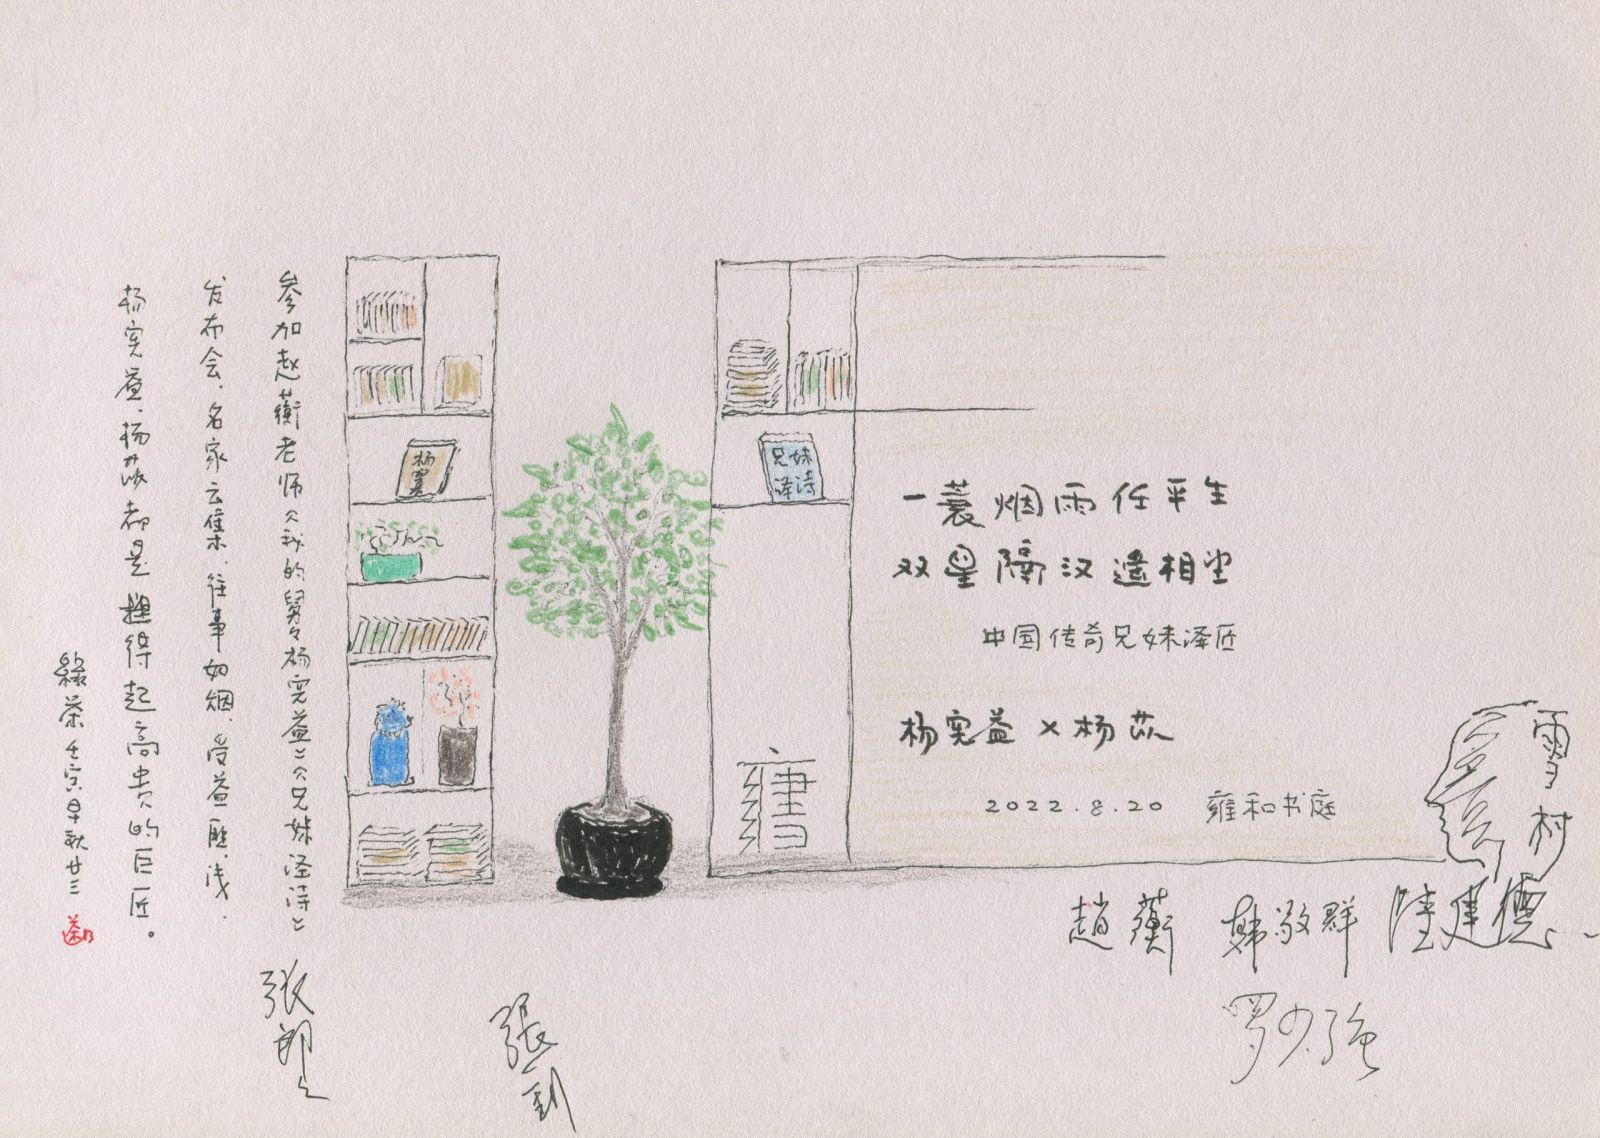 参加赵蘅老师《我的舅々杨宪益》《兄妹译诗》
发布会，名家云集，往事如烟，受益匪浅，
杨宪益、杨苡都是得起高贵的巨匠。
绿茶 壬寅早秋廿三
杨宪益
兄妹
译诗
書
一蓑烟雨任平生
双星隔汉遥相望
中国传奇兄妹译匠
杨宪益×杨苡
2022.8.20 雍和书庭
雪村
趙蘅 韩敬群 陸建德
罗少强
張
张